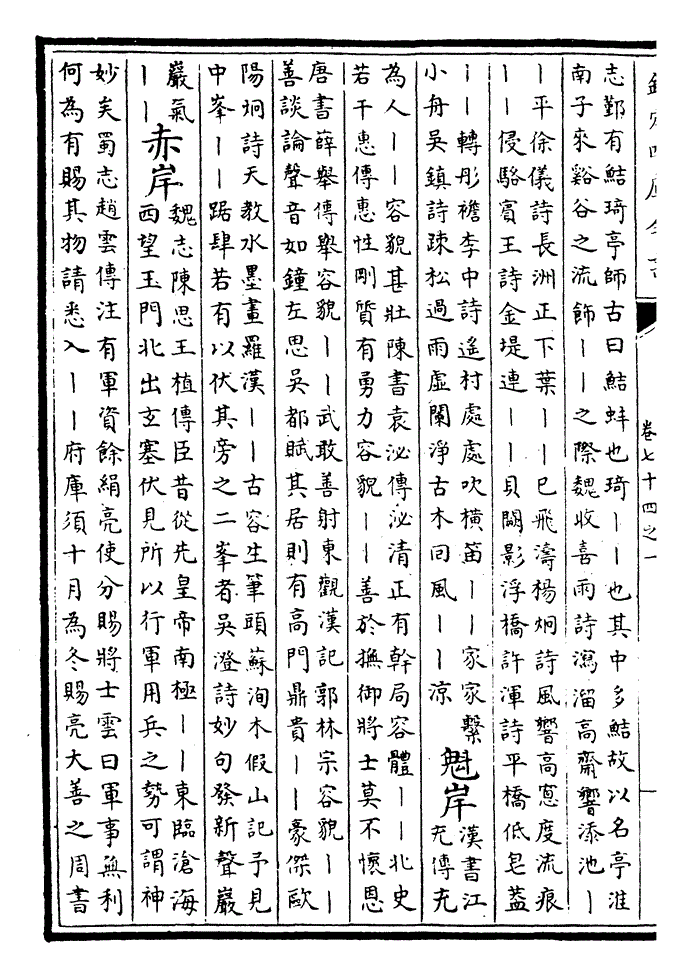 欽定四庫全書
卷七十四之一
一
志鄞有鮚琦亭師古曰鮚蚌也琦丨丨也其中多鮚故以名亭淮
南子來谿谷之流飾丨丨之際魏收喜雨詩瀉溜高齋響添池丨
丨平徐儀詩長洲正下葉丨丨巳飛濤楊炯詩風響高窻度流痕
丨丨侵駱賓王詩金堤連丨丨貝闕影浮橋許渾詩平橋低皂蓋
丨丨轉彤襜李中詩遙村處處吹橫笛丨丨家家繫
小舟吳鎮詩疎松過雨虛闌淨古木回風丨丨涼
魁岸
漢書江
充傳充
為人丨丨容貌甚壯陳書袁泌傳泌清正有幹局容體丨丨北史
若干惠傳惠性剛質有勇力容貌丨丨善於撫御將士莫不懷恩
唐書薛舉傳舉容貌丨丨武敢善射東觀漢記郭林宗容貌丨丨
善談論聲音如鐘左思吳都賦其居則有高門鼎貴丨丨豪傑歐
陽炯詩天教水墨畫羅漢丨丨古容生筆頭蘇洵木假山記予見
中峯丨丨踞肆若有以伏其旁之二峯者吳澄詩妙句發新聲巖
巖氣
丨丨
赤岸
魏志陳思王植傳臣昔從先皇帝南極丨丨東臨滄海
西望玉門北出玄塞伏見所以行軍用兵之勢可謂神
妙矣蜀志趙雲傳注有軍資餘絹亮使分賜將士雲曰軍事無利
何為有賜其物請悉入丨丨府庫須十月為冬賜亮大善之周書